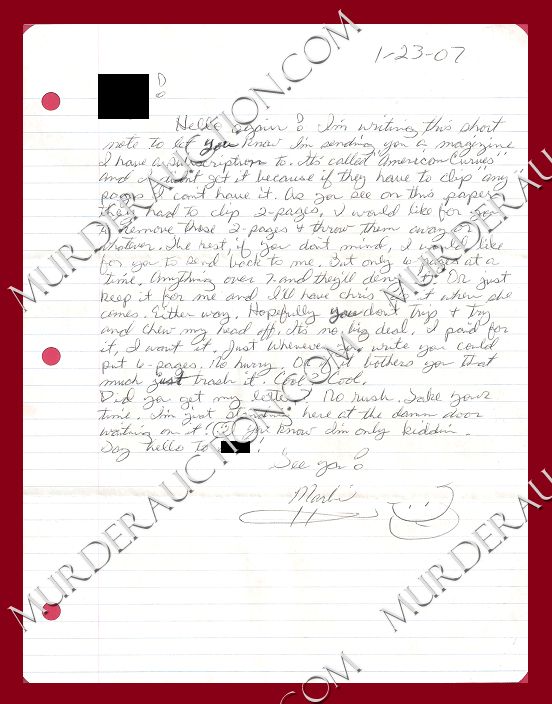 1-23-07
D
Hello again! I'm writing this short
note to let you know I'm sending you a magazine
I have a subscription to. It's called "American Curves"
and I won't get it because if they have to clip "any"
pages I can't have it. As you see on this paper
they had to clip 2-pages, I would like for you
to remove those 2-pages & throw them away or
whatever. The rest, if you don't mind, I would like
for you to send back to me. But only 6-pages at a
time. Anything over 7 and they'll deny it. Or just
keep it for me and I'll have chris get it when she
comes. Either way. Hopefully you don't trip & try
and chew my head off. It's no big deal. I paid for
it, I want it. Just whenever you write you could
put 6-pages. No hurry. Or if it bothers you that
much just trash it. Cool? Cool.
Did you get my letter? No rush. Take your
time. I'm just standing here at the damn door
waiting on it! you know I'm only kiddin.
Say hello to !
See you!
MURDERAUCTION.COM
MURDERAUCTION.COM
MURDERAUCTION.COM
MURDERAUCTION.COM
MURDERAUCTION.COM
MURDERAUCTION.COM